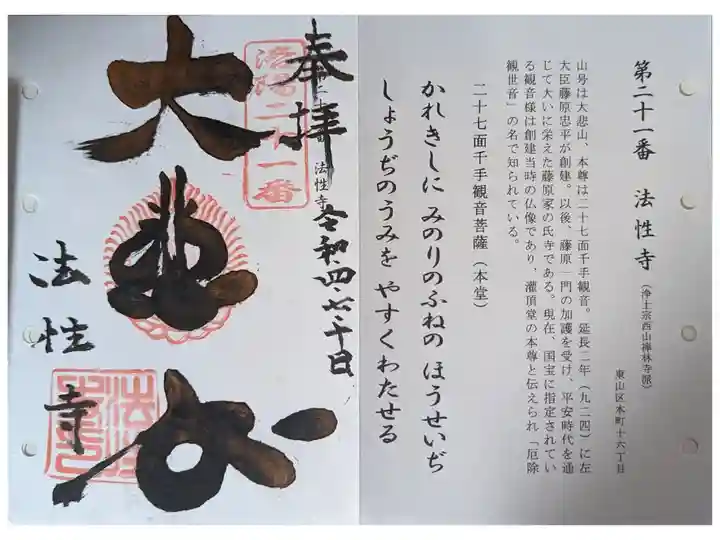 第二十一番 法性寺（浄土宗西山禅林寺派）
東山区本町十六丁目
山号は大悲山、本尊は二十七面千手観音。延長二年（九二四）に左
大臣藤原忠平が創建。以後、藤原一門の加護を受け、平安時代を通
じて大いに栄えた藤原家の氏寺である。現在、国宝に指定されてい
る観音様は創建当時の仏像であり、灌頂堂の本尊と伝えられ「厄除
観世音」の名で知られている。
二十七面千手観音菩薩（本堂）
かれきしに みのりのふねの ほうせいぢ
しょうぢのうみを やすくわたせる
奉拝
法性寺
令和四・七・十日
洛陽二十一番
大悲
法性寺